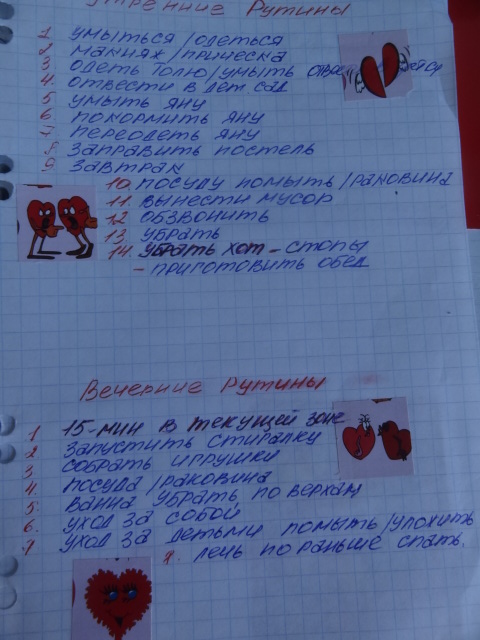 Утренние Рутины
1 умыться/одеться
2 макияж/прическа
3 одеть Толю/умыть
4 отвести в дет сад
5 умыть Яну
6 покормить Яну
7 переодеть Яну
8. заправить постель
9. завтрак
10. посуду помыть/раковина
11. вынести мусор
12 обзвонить
13 убрать
14. убрать хот-стопы
- приготовить обед
Вечерние рутины
1 15-мин в текущей зоне
2 запустить стиралку
3 собрать игрушки
4. посуда/раковина
5. ванна убрать по верхам
6. уход за собой
7 уход за детьми помыть/уложить
8. лечь по раньше спать.